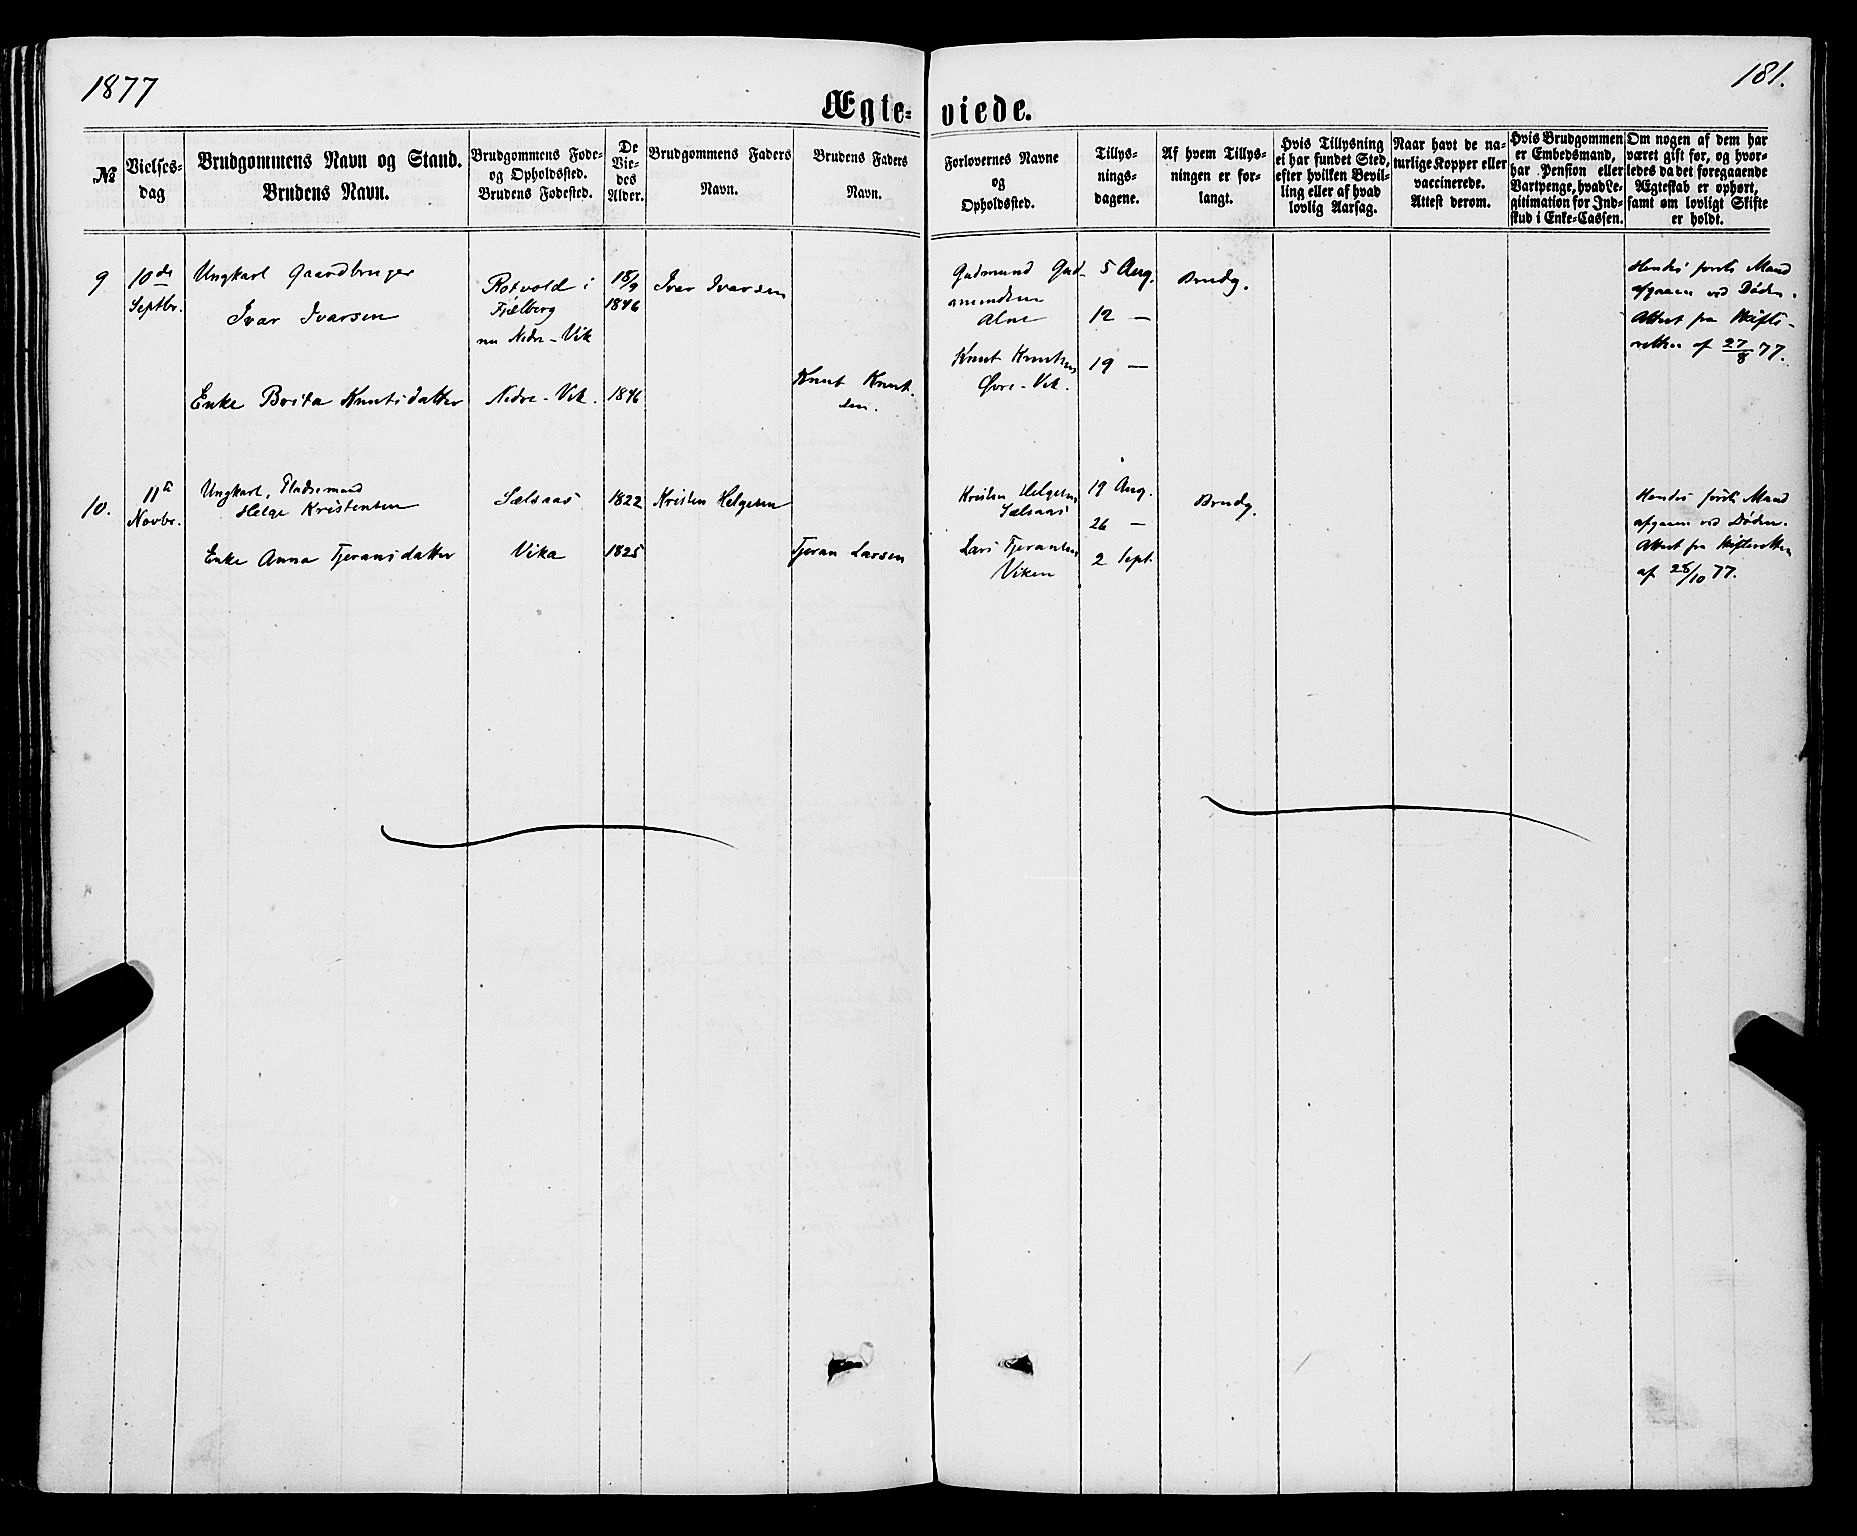 1877
181.
Ægte- viede.
№
Vielses-
dag
Brudgommens Navn og Stand.
Brudens Navn.
Brudgommens Føde-
og Opholdssted.
Brudens Fødested.
De
Vie-
des
Alder.
Brudgommens Faders
Navn.
Brudens Faders
Navn.
Forlovernes Navne
og
Opholdssted.
Tillys-
nings-
dagene.
Af hvem Tillys-
ningen er for-
langt.
Hvis Tillysning
ei har fundet Sted,
efter hvilken Bevil-
ling eller af hvad
lovlig Aarsag.
Naar havt de na-
turlige Kopper eller
vaccinerede.
Attest derom.
Hvis Brudgommen
er Embedsmand,
har Pension eller
Vartpenge, hvad Le-
gitimation for Ind-
skud i Enke-Cassen.
Om nogen af dem har
været gift før, og hvor-
ledes da det foregaaende
Ægteskab er ophørt,
samt om lovligt Skifte
er holdt.
9
10de
Septbr.
Ungkarl Gaardbruger
Ivar Ivarsen
Rotvold i
Fjelberg
nu Nedre-Vik
18/9
1846
Ivar Ivarsen
Gudmund Gud-
mundsen
5 Aug.
12 —
19 —
Brudg.
Knut Knutsen
Øvre-Vik.
Hendes første Mand
afgaaen ved Døden.
Attest fra Skifts-
retten af 27/8 77.
Enke Brita Knutsdatter
Nedre-Vik.
1846
Knut Knut-
sen.
10.
11te
Novbr.
Ungkarl, Pladsemand
Helge Kristensen
Sælsaas
1822
Kristen Helgesen
Kristen Helgesen
Sælsaas
19 Aug.
26 —
2 Sept.
Brudg.
Hendes første Mand
afgaaen ved Døden.
Attest fra Skifteretten
af 28/10 77.
Enke Anna Tjeransdatter
Vika
1825
Tjeran Larsen
Lars Tjeransen
Viken